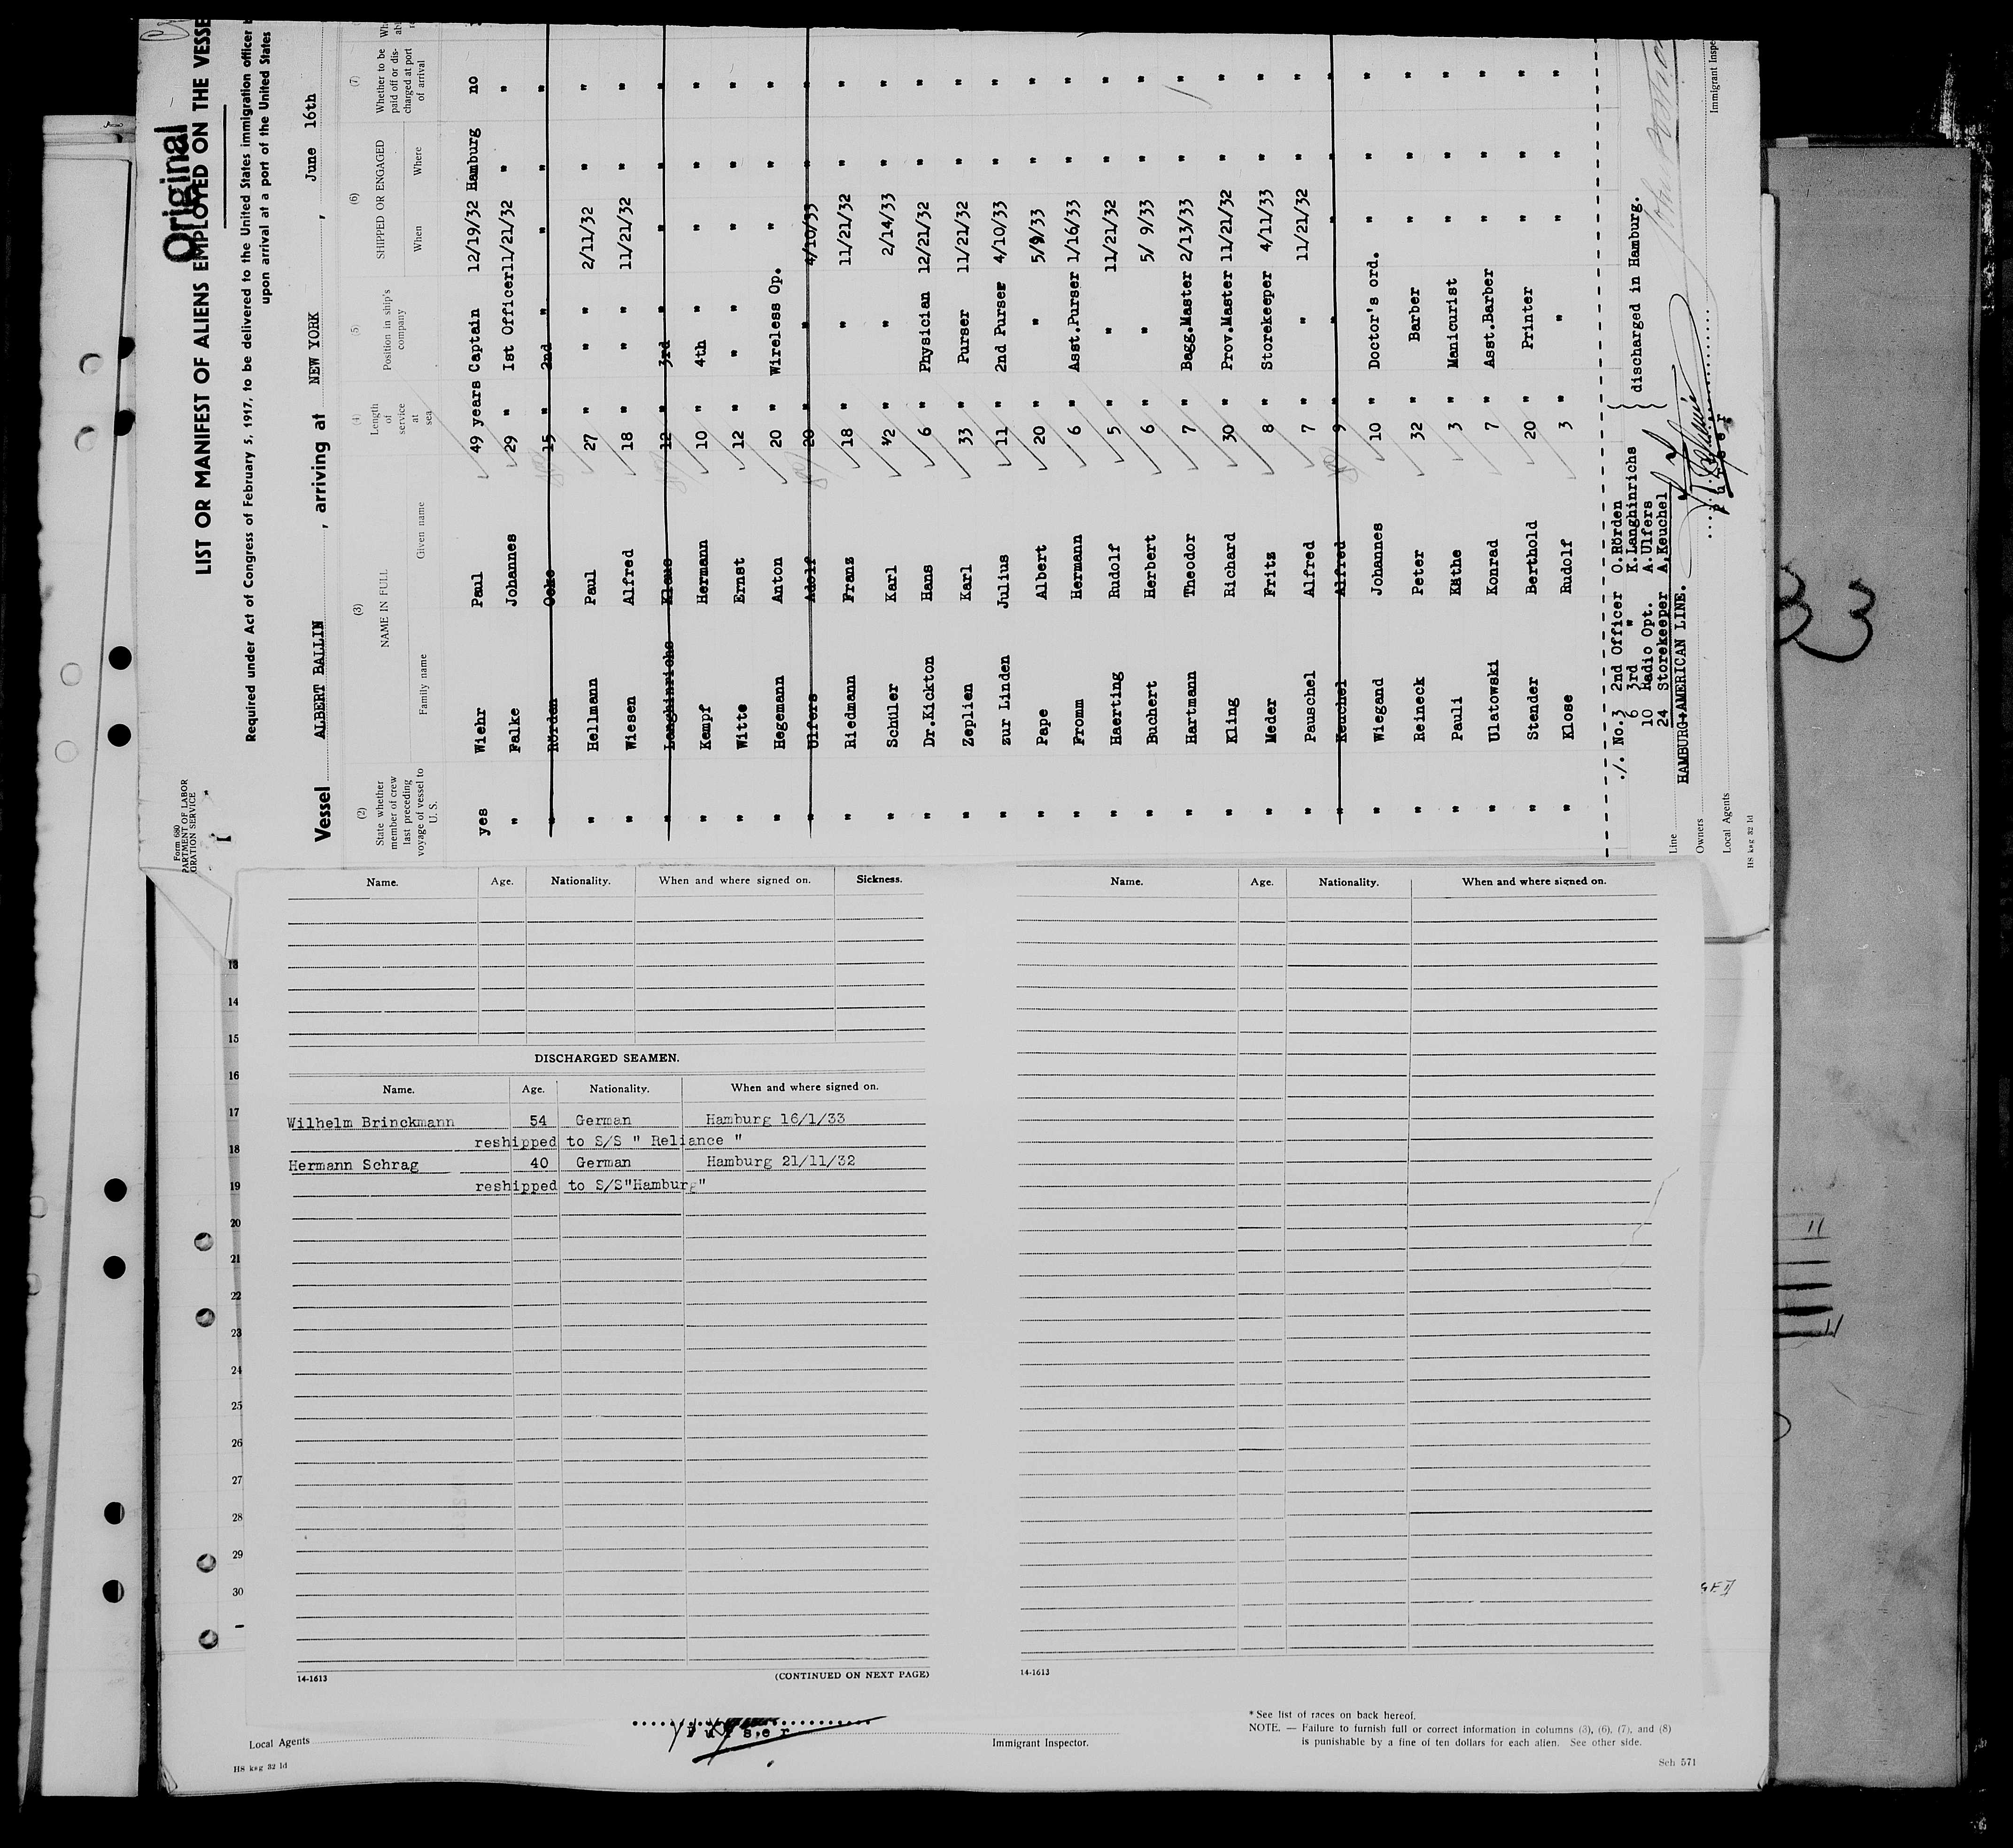 Form 680
PARTMENT OF LABOR
IGRATION SERVICE
1
Original
LIST OR MANIFEST OF ALIENS EMPLOYED ON THE VESSE
Required under Act of Congress of February 5, 1917, to be delivered to the United States immigration officer
upon arrival at a port of the United States
Vessel ALBERT BALLIN , arriving at NEW YORK , June 16th
(2) (3) (4) (5) (6) (7)
State whether member of crew last preceding voyage of vessel to U. S. NAME IN FULL Family name Given name Length of service at sea Position in ship's company SHIPPED OR ENGAGED When Where Whether to be paid off or discharged at port of arrival
yes Wiehr Paul 49 years Captain 12/19/32 Hamburg no
" Falke Johannes 29 " 1st Officer 11/21/32 " "
" Rörden Ocke 15 " 2nd " " " "
" Hellmann Paul 27 " " " 2/11/32 " "
" Wiesen Alfred 18 " " " 11/21/32 " "
" Langhinrichs Klaus 12 " 3rd " " " "
" Kempf Hermann 10 " 4th " " " "
" Witte Ernst 12 " " " " " "
" Hegemann Anton 20 " Wireless Op. " " "
" Ulfers Adolf 20 " " 4/10/33 " "
" Riedmann Franz 18 " " 11/21/32 " "
" Schüler Karl ½ " " 2/14/33 " "
" Dr.Kickton Hans 6 " Physician 12/21/32 " "
" Zeplien Karl 33 " Purser 11/21/32 " "
" zur Linden Julius 11 " 2nd Purser 4/10/33 " "
" Pape Albert 20 " " 5/9/33 " "
" Fromm Hermann 6 " Asst.Purser 1/16/33 " "
" Haerting Rudolf 5 " " 11/21/32 " "
" Buchert Herbert 6 " " 5/ 9/33 " "
" Hartmann Theodor 7 " Bagg.Master 2/13/33 " "
" Kling Richard 30 " Prov.Master 11/21/32 " "
" Meder Fritz 8 " Storekeeper 4/11/33 " "
" Pauschel Alfred 7 " " 11/21/32 " "
" Keuchel Alfred 9 " " " " "
" Wiegand Johanes 10 " Doctor's ord. " " "
" Reineck Peter 32 " Barber " " "
" Pauli Käthe 3 " Manicurist " " "
" Ulatowski Konrad 7 " Asst.Barber " " "
" Stender Berthold 20 " Printer " " "
" Klose Rudolf 3 " " " " "
./. No.3 2nd Officer O.Rörden
6 3rd " K.Langhinrichs
10 Radio Opt. A.Ulfers
24 Storekeeper A.Keuchel
discharged in Hamburg.
Line HAMBURG-AMERICAN LINE.
Owners
Purser
Local Agents
Immigrant Inspe
HS kng 32 ld
Name. Age. Nationality. When and where signed on. Sickness.
DISCHARGED SEAMEN.
Name. Age. Nationality. When and where signed on.
Wilhelm Brinckmann 54 German Hamburg 16/1/33
reshipped to S/S " Reliance "
Hermann Schrag 40 German Hamburg 21/11/32
reshipped to S/S"Hamburg"
14-1613 (CONTINUED ON NEXT PAGE)
Name. Age. Nationality. When and where signed on.
14-1613
13
14
15
16
17
18
19
20
21
22
23
24
25
26
27
28
29
30
33
Local Agents
Purser
Immigrant Inspector.
HS kng 32 ld
* See list of races on back hereof.
NOTE. — Failure to furnish full or correct information in columns (3), (6), (7), and (8)
is punishable by a fine of ten dollars for each alien. See other side.
Sch 571